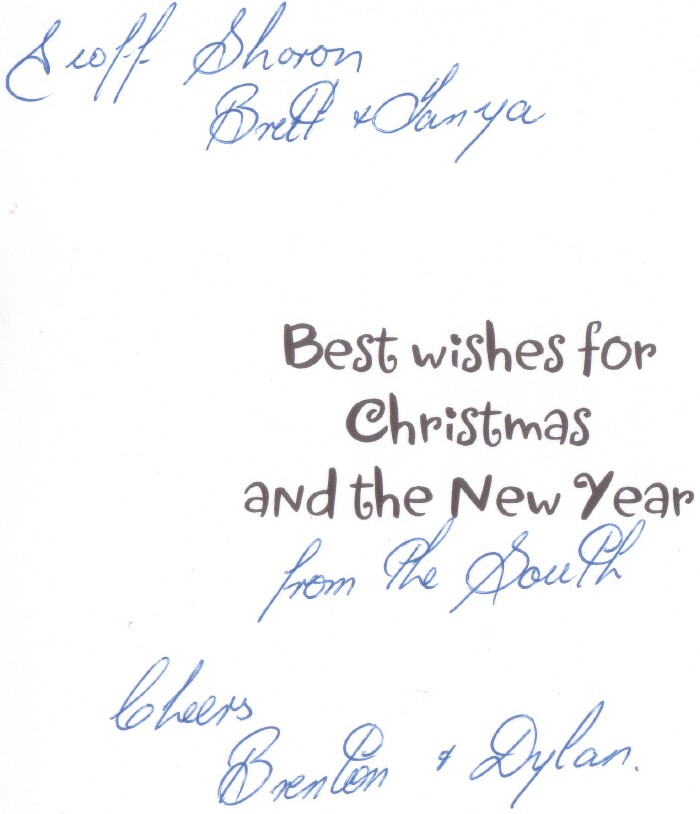 Geoff Sharon
Brett & Tanya
Best wishes for
Christmas
and the New Year
from the South
Cheers
Brenton & Dylan.